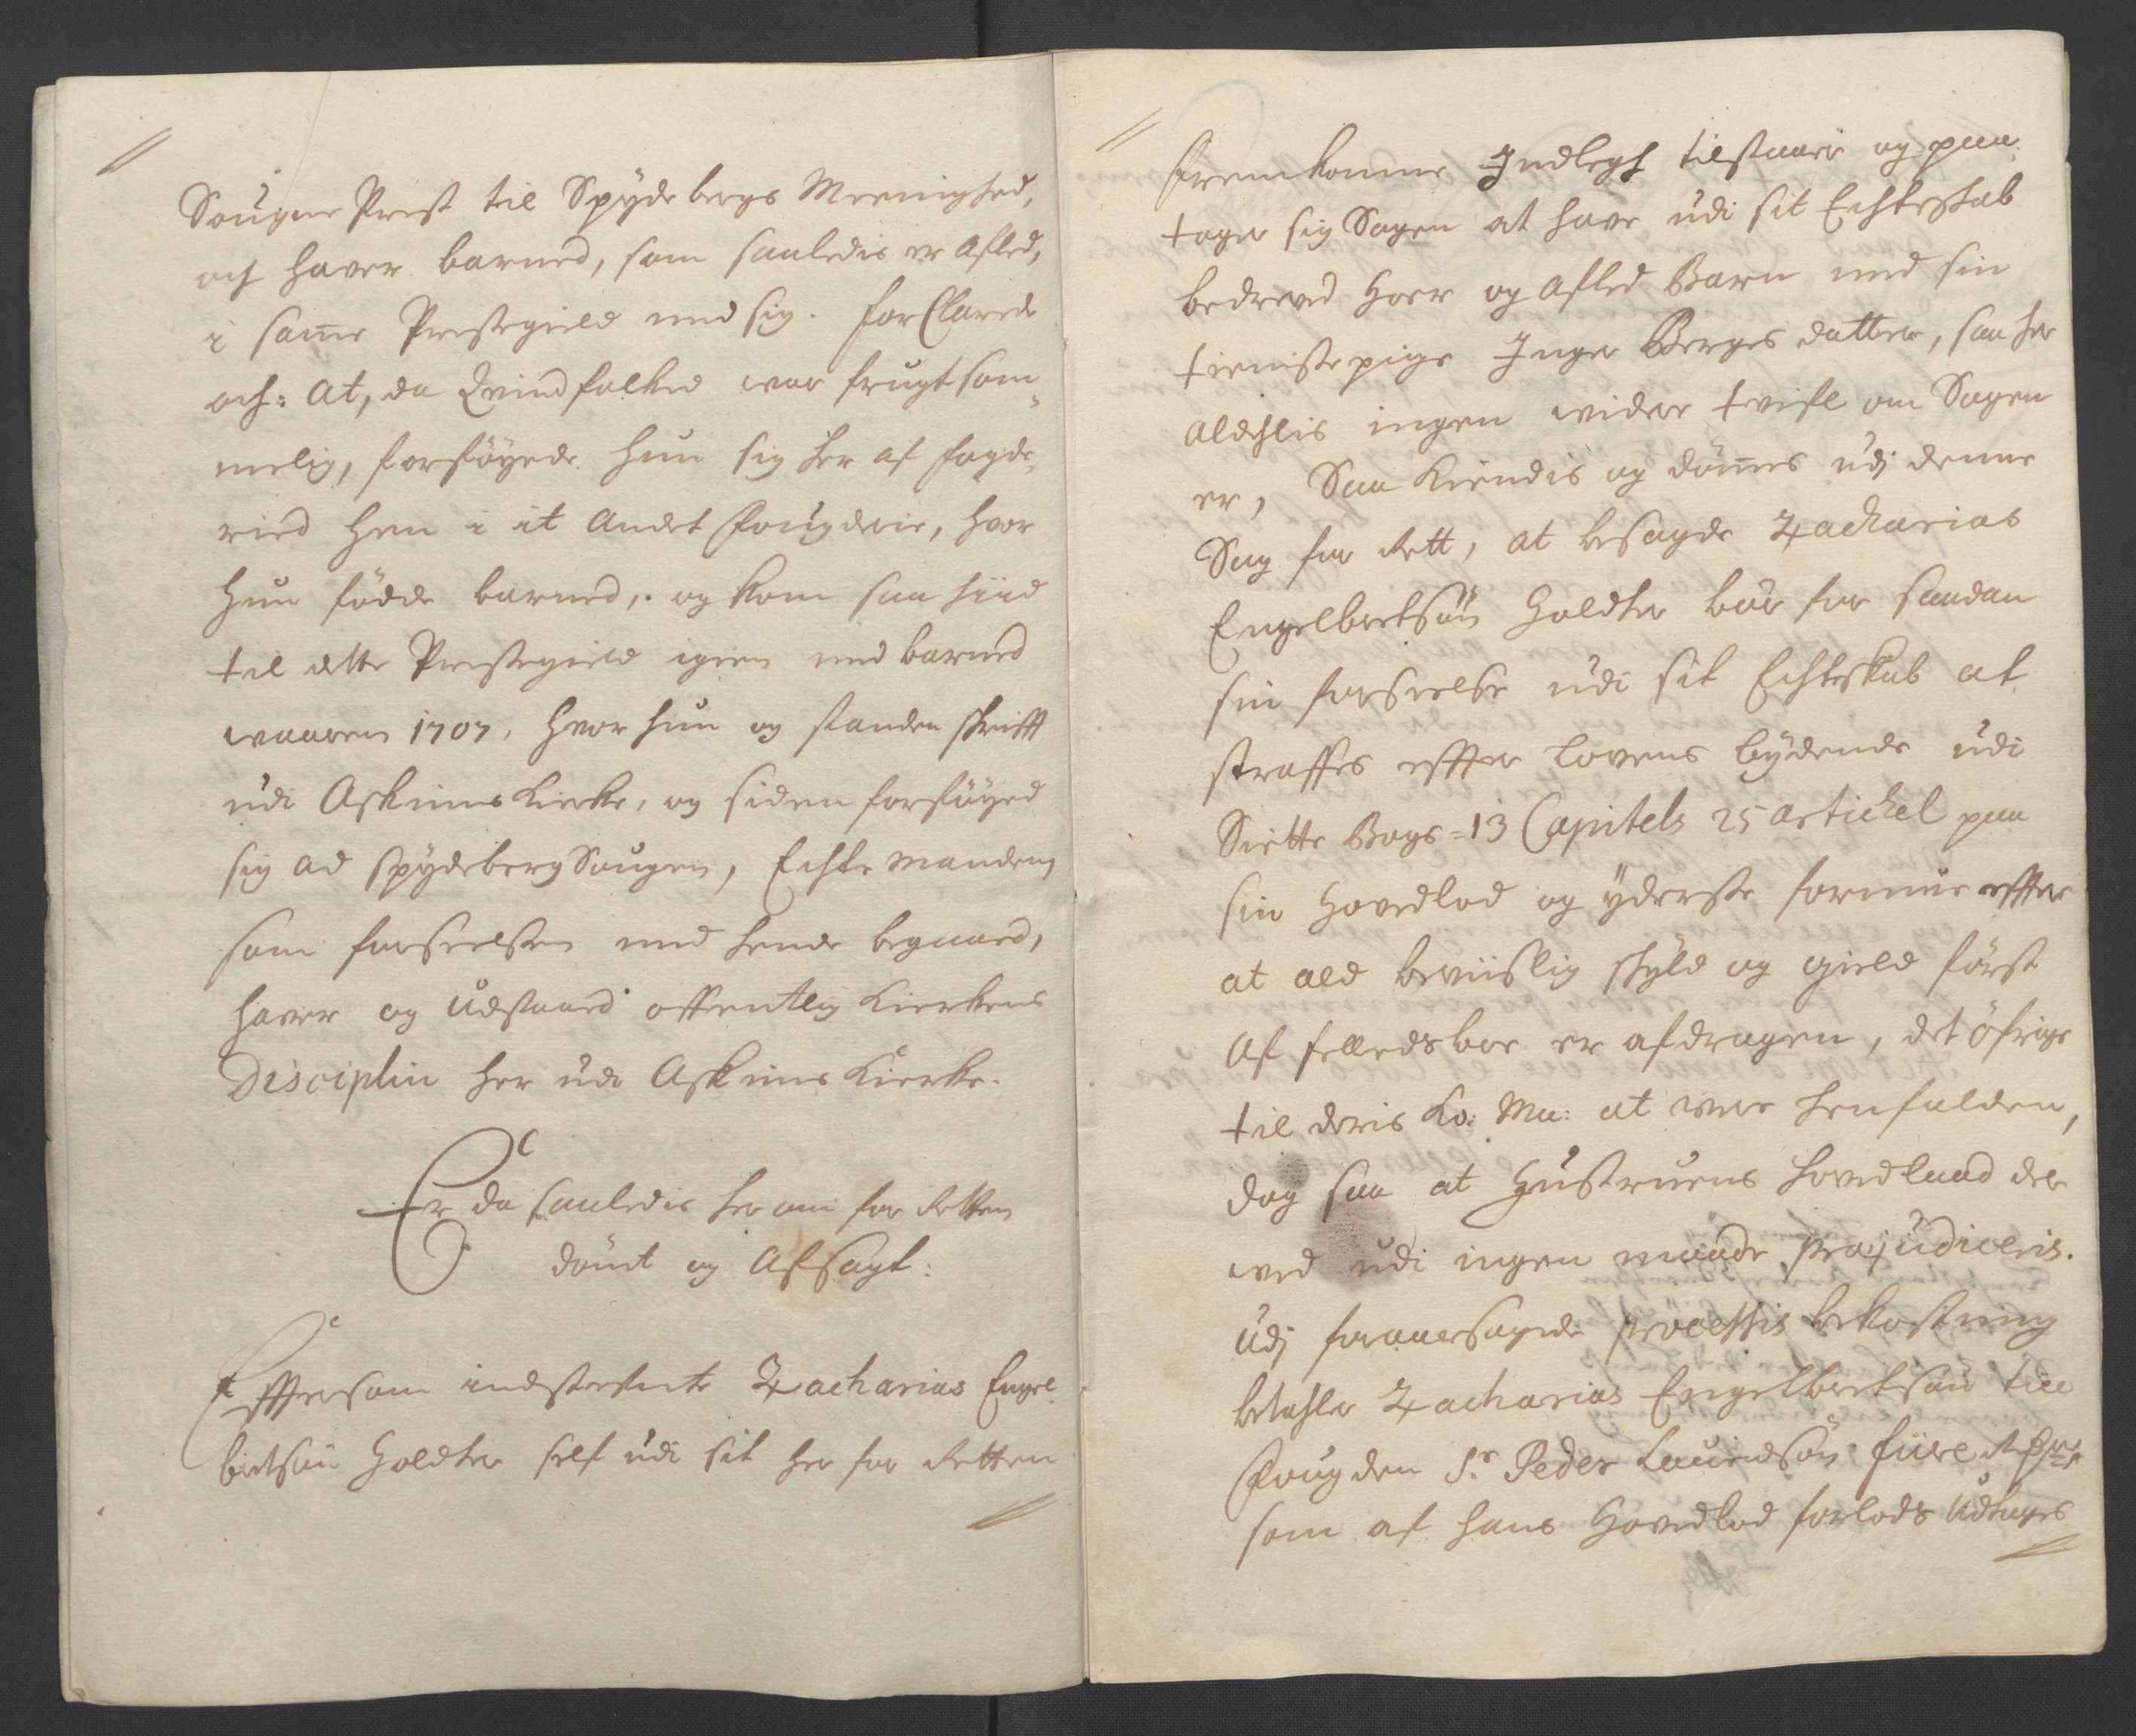 Sougne Prest til Spydebergs Meenighed,
och hafver barned, som saaledis er Afled,
i samme Prestegield med sig. forClarede
och: At, da Qvindfolked war frugtsom¬
melig, forføyede hun sig her af fogde¬
ried hen i it Andet Fougderie, hvor
hun fødde barned, og kom saa hiid
til dette Prestegield igien med barned
waaren 1707, hvor hun og standen skrifft
udi Askims Kierke, og siden forføyed
sig ad Spydeberg Sougen, Echte Manden,
som forseelsen med hende begaaed,
hafver og udstaaed offentlig Kierkens
Disciplin her udi Askims Kierke.
Er da saaledis her om for Retten
dømt og Afsagt:
Effter som indstefnte Zacharias Engel¬
bretsøn Holdter self udi sit her for Retten
fremkomne Indlegh tilstaaer og paa¬
tager sig Sagen at have udi sit Echteskab
bedrevet Hoer og Afled Barn med sin
tienistepige Inger Berges datter, saa her
aldehlis ingen wider tvifl om Sagen
er, Saa kiendis og dømmes udj denne
Sag for Rett, at besagde Zacharias
Engelbretsøn Holdter bør for saadan
sin forseelse udi sit Echteskab at
straffes effter Lovens bydende udi
Siette Bogs 13 Capitels 25 artickel paa
sin Hovedlod og yderste formue effter
at ald beviislig skyld og gield først
af felleds boe er afdragen, det øfrige
til deris Ko: Ma: at were henfalden,
dog saa at Hustruens hovedlaad der
wed udi ingen maade præjudiceris.
Udj foraarsagede processis bekostning
betahler Zacharias Engelbretsøn til
Fougden Sr Peder Lauridsøn fiire
som af hans Hovedlod forlods udtages